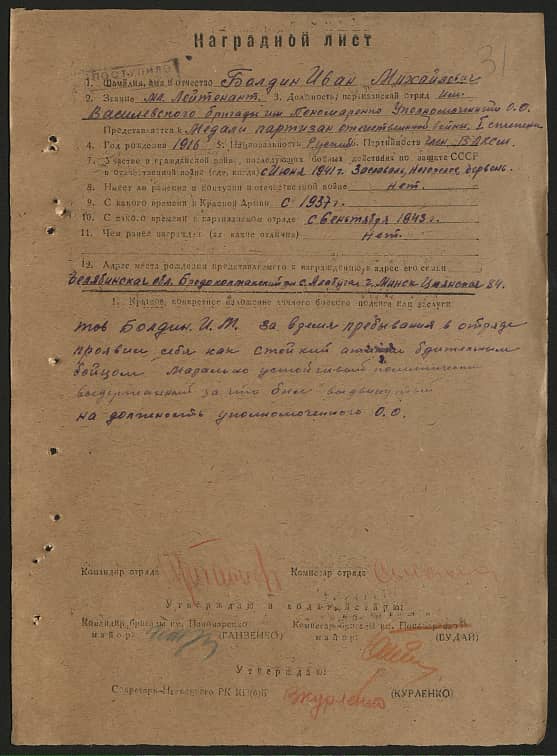 31
ПОСТУПИЛО
Наградной лист
1. Фамилия, имя и отчество Болдин Иван Михайлович
2. Звание мл. Лейтенант. 3. Должность, партизанский отряд им.
Василевского бригады им Пономаренко Уполномоченный О.О.
Представляется к Медали партизан отечественной войны I степени
4. Год рождения 1916 5. Национальность Русский Партийность член ВЛКСМ.
7. Участие в гражданской войне, последующих боевых действиях по защите СССР
и отечественной войне (где, когда) с Июня 1941 г. Заславль,
8. Имеет ли ранения и контузии в отечественной войне нет.
9. С какого времени в Красной Армии С 1937 г.
10. С какого времени в партизанском отряде с Сентября 1943 г.
11. Чем ранее награжден (за какие отличия) нет.
12. Адрес места рождения представляемого к награждению и адрес его семьи
Челябинская обл. Бродоколмакский р-н с. г. Минск 84.
1. Краткое, конкретное изложение личного боевого подвига или заслуги
тов Болдин. И. М. за время пребывания в отряде
проявил себя как стойкий бдительным
бойцом Морально устойчивый политически
выдержанный за что был выдвинутый
на должность уполномоченного О.О.
Командир отряда Комиссар отряда
Утверждаю и ходатайствую:
Командир бригады им. Пономаренко Комиссар бригады им. Пономаренко
майор: (ГАНЗЕНКО) майор: (БУДАЙ)
Утверждаю:
Секретарь РК КП(б)Б Вкурленко (КУРЛЕНКО)